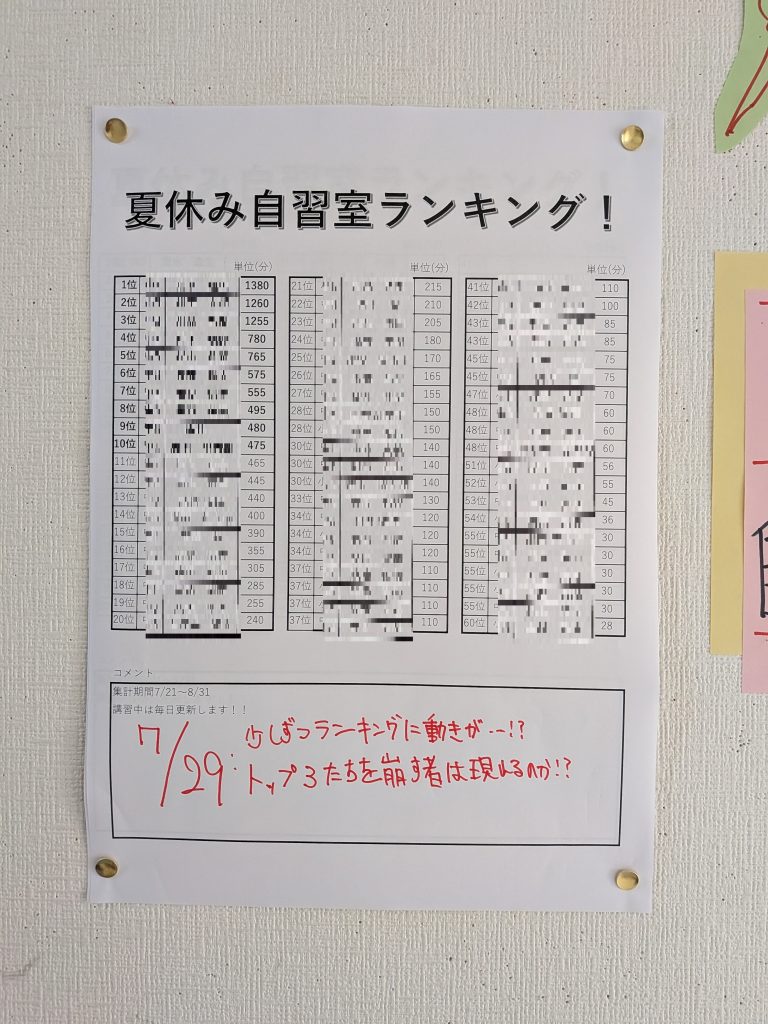 夏休み自習室ランキング!
単位(分)
1位 1380
2位 1260
3位 1255
4位 780
5位 765
6位 575
7位 555
8位 495
9位 480
10位 475
11位 465
12位 445
13位 440
14位 400
15位 390
16位 355
17位 305
18位 285
19位 255
20位 240
単位(分)
21位 215
22位 210
23位 205
24位 180
25位 170
26位 165
27位 155
28位 150
28位 150
30位 140
30位 140
30位 140
33位 130
34位 120
34位 120
34位 120
37位 110
37位 110
37位 110
37位 110
単位(分)
41位 110
42位 100
43位 85
43位 85
45位 75
45位 75
47位 70
48位 60
48位 60
48位 60
51位 56
52位 55
53位 45
54位 36
55位 30
55位 30
55位 30
55位 30
55位 30
60位 28
コメント
集計期間7/21~8/31
講習中は毎日更新します!!
7/29: 少しずつランキングに動きが…!?
トップ3たちを崩す者は現れるのか!?